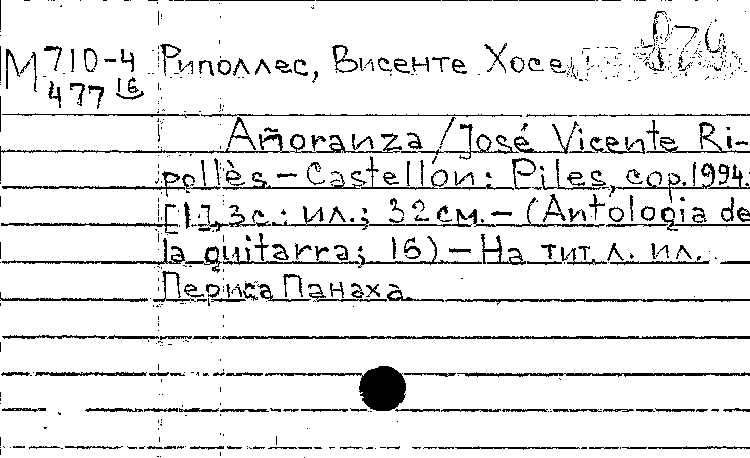 М 710-4 Риполлес, Висенте Хосе
477 16
Añoranza / José Vicente Ri-
pollès – Castellon: Piles, cop. 1994.
[1], 3 с.: ил.; 32 см. – (Antologia de
la guitarra; 16) – На тит. л. ил.
Периса Панаха.